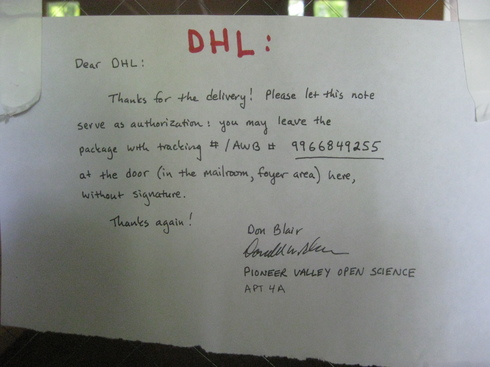 DHL:
Dear DHL:
Thanks for the delivery! Please let this note
serve as authorization: you may leave the
package with tracking #/AWB # 9966849255
at the door (in the mailroom, foyer area) here,
without signature.
Thanks again!
Don Blair
PIONEER VALLEY OPEN SCIENCE
APT 4A